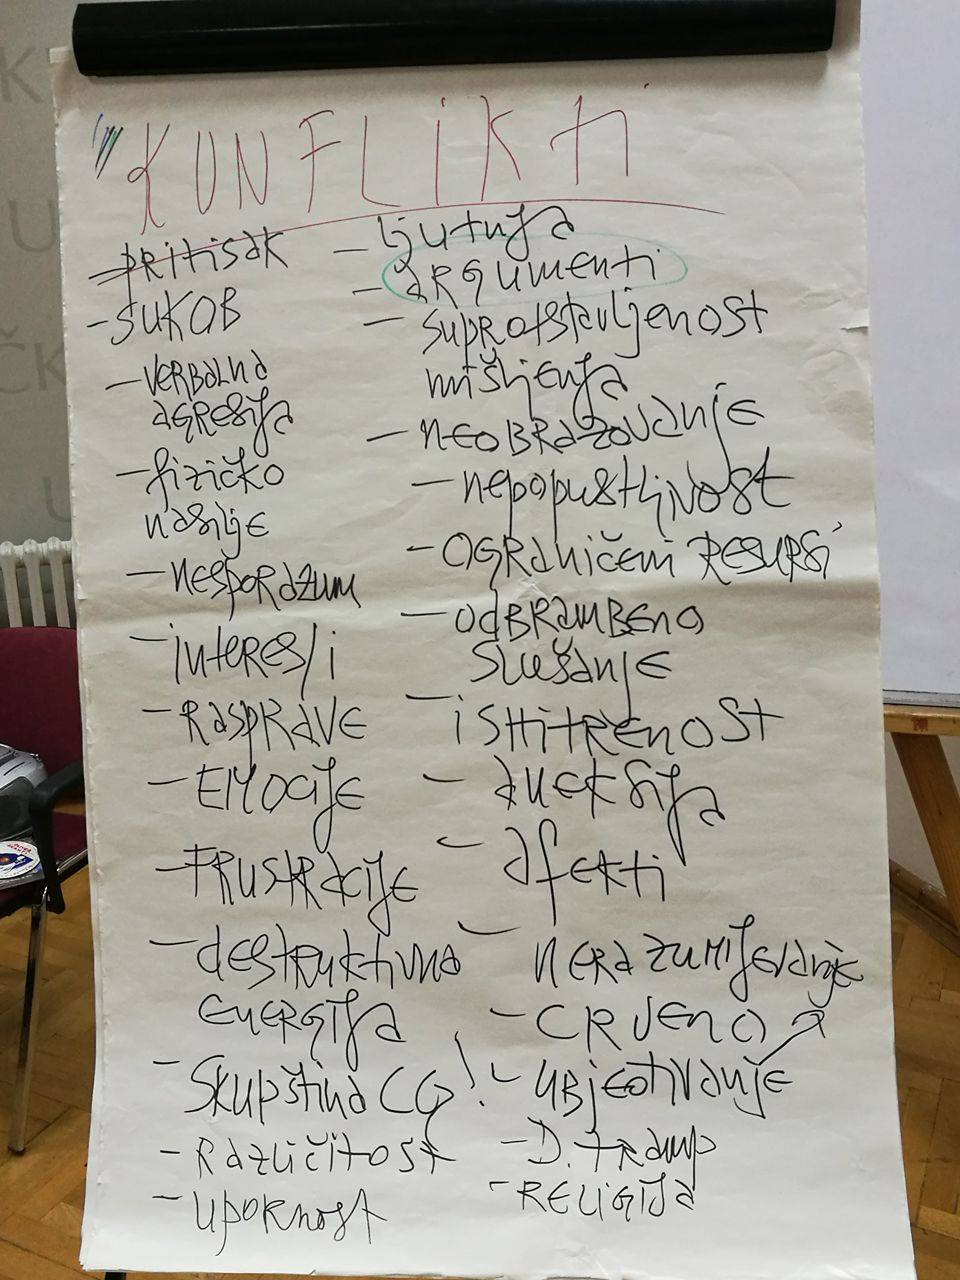 KONFLIKTI
- PRITISAK
- SUKOB
- VERBALNA
AGRESIJA
- fizičko
nasilje
- NESPORAZUM
- INTERESI
- RASPRAVE
- EMOCIJE
- FRUSTRACIJE
- destruktivna
ENERGIJA
- Skupština CG!
- Različitost
- upornost
- ljutnja
- ARGUMENTI
- suprotstavljenost
mišljenja
- NEOBRAZOVANJE
- nepopustljivost
- OGRANIČENI RESURSI
- ODBRAMBENO
SLUŠANJE
- ISHITRENOST
- ANEKSIJA
- afekti
- NERAZUMIJEVANJE
- CRVENO
- UBJEĐIVANJE
- D. TRAMP
- RELIGIJA